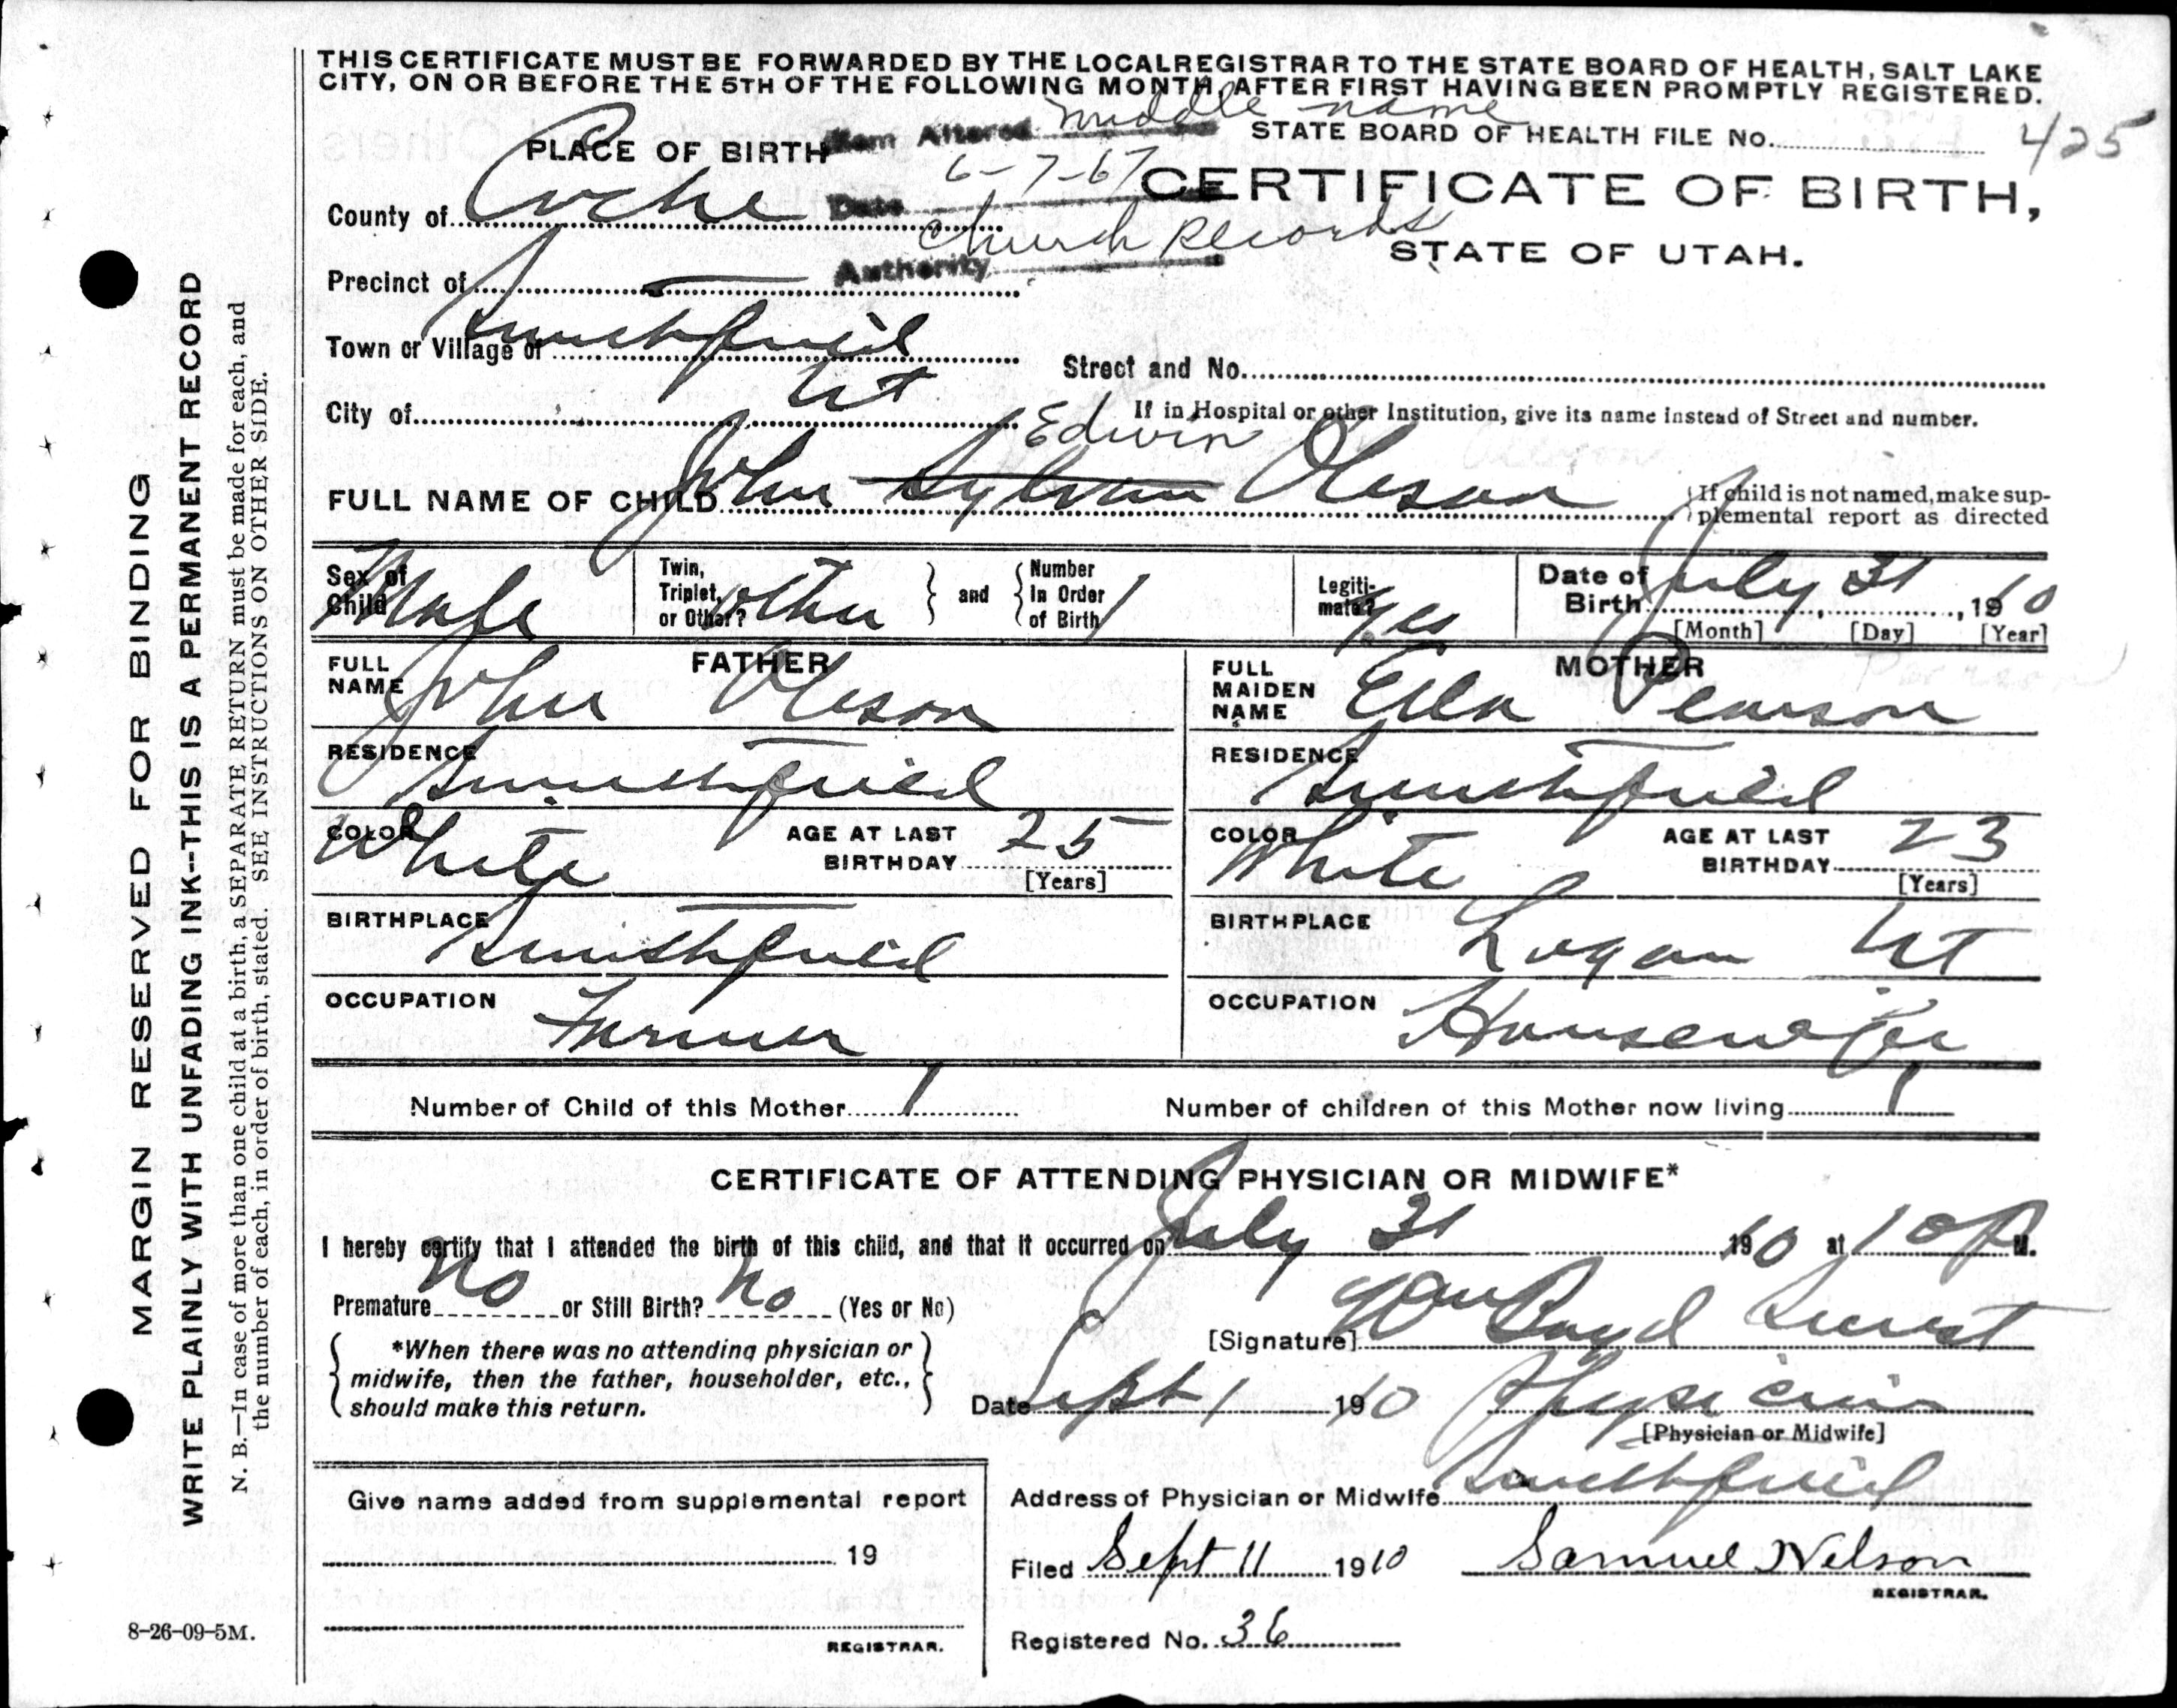 THIS CERTIFICATE MUST BE FORWARDED BY THE LOCAL REGISTRAR TO THE STATE BOARD OF HEALTH, SALT LAKE
CITY, ON OR BEFORE THE 5TH OF THE FOLLOWING MONTH, AFTER FIRST HAVING BEEN PROMPTLY REGISTERED.
PLACE OF BIRTH
Item Altered middle name
STATE BOARD OF HEALTH FILE No. 425
County of Cache
Date 6-7-67
CERTIFICATE OF BIRTH,
Authority Church Records
STATE OF UTAH.
Precinct of
Town or Village of Smithfield
Street and No.
City of Ut
If in Hospital or other Institution, give its name instead of Street and number.
Edwin
FULL NAME OF CHILD John Sylvan Oleson
If child is not named, make sup-
plemental report as directed
Sex of Child Male
Twin, Triplet, or Other? other
and
Number In Order of Birth 1
Legiti- mate? Yes
Date of Birth July 31, 1910
[Month] [Day] [Year]
FATHER
FULL NAME John Oleson
RESIDENCE Smithfield
COLOR White
AGE AT LAST BIRTHDAY 25
[Years]
BIRTHPLACE Smithfield
OCCUPATION Farmer
MOTHER
FULL MAIDEN NAME Ella Pearson
RESIDENCE Smithfield
COLOR White
AGE AT LAST BIRTHDAY 23
[Years]
BIRTHPLACE Logan Ut
OCCUPATION Housewife
Number of Child of this Mother 1
Number of children of this Mother now living 1
CERTIFICATE OF ATTENDING PHYSICIAN OR MIDWIFE*
I hereby certify that I attended the birth of this child, and that it occurred on July 31 1910 at 10 P M.
Premature No or Still Birth? No (Yes or No)
[Signature]
*When there was no attending physician or
midwife, then the father, householder, etc.,
should make this return.
Date Sept 1 1910 Physician
[Physician or Midwife]
Address of Physician or Midwife Smithfield
Give name added from supplemental report
19
REGISTRAR.
Filed Sept 11 1910 Samuel Nelson
REGISTRAR.
Registered No. 36
8-26-09-5M.
MARGIN RESERVED FOR BINDING
WRITE PLAINLY WITH UNFADING INK--THIS IS A PERMANENT RECORD
N. B.—In case of more than one child at a birth, a SEPARATE RETURN must be made for each, and
the number of each, in order of birth, stated. SEE INSTRUCTIONS ON OTHER SIDE.